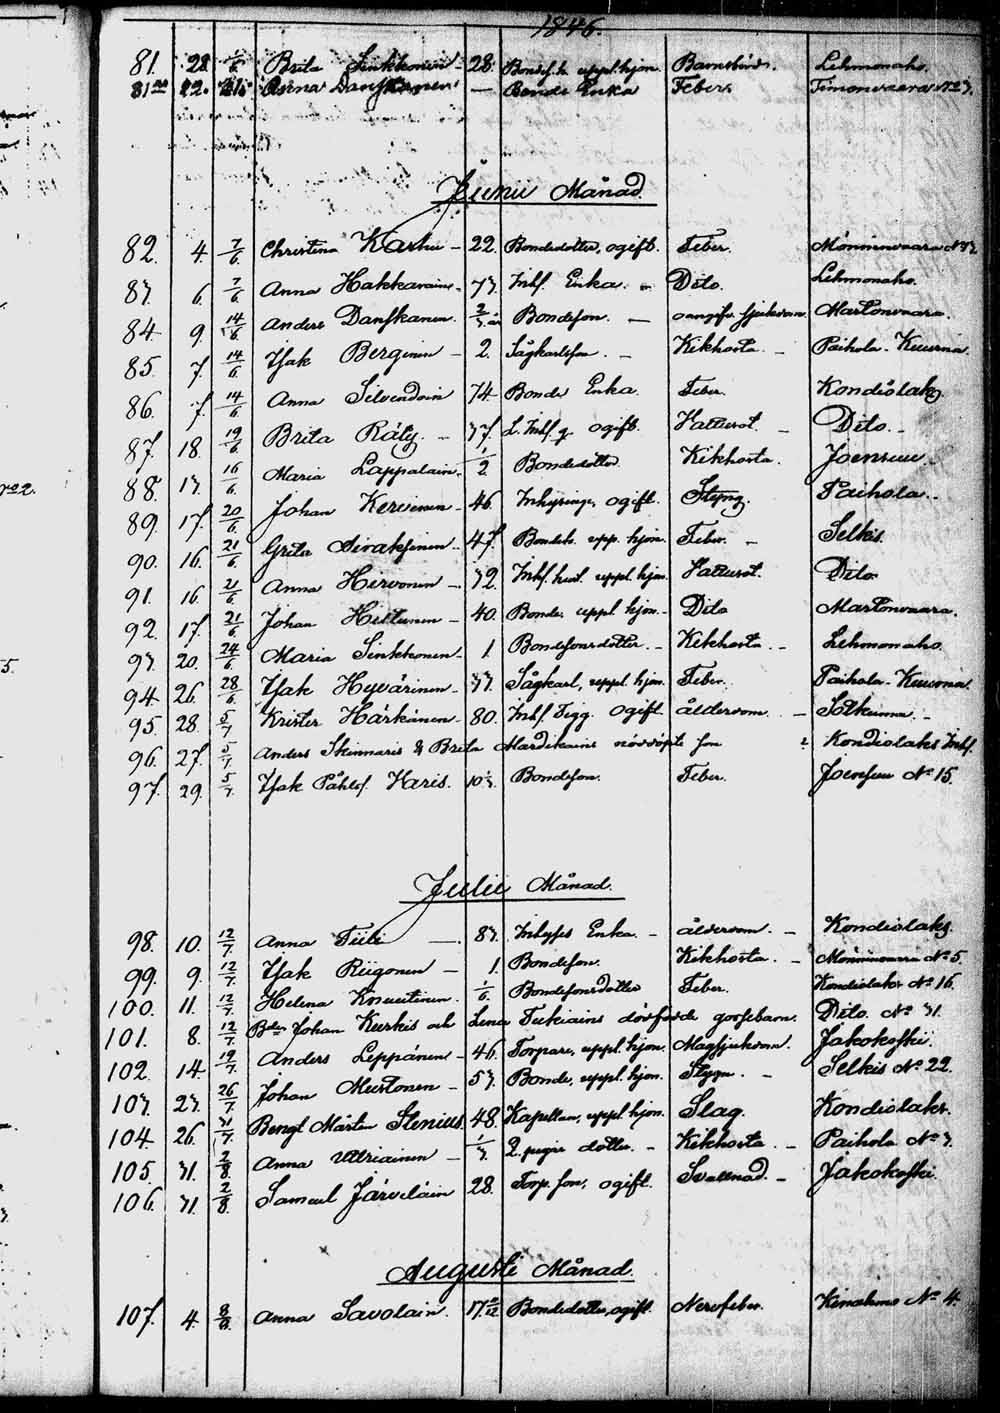 1846.
81. 28. 1/6 Brita Sinkkonen 28. Bondeh. uppl. hjon. Barnsbörd. Lehmonaho.
81 22. Danskanen — Bonde Enka Feber. Timonvaara No 3.
Junii Månad.
82. 4. 7/6 Christina Karhu — 22. Bondedotter, ogift. Feber. Mönninvaara No
83. 6. 7/6 Anna Hakkarain — 73. Inhs. Enka. Dito. Lehmonaho.
84 9. 14/6 Anders Danskanen. Bondeson. — oangifv. sjukdom. Martonvaara.
85. 7. 14/6 Isak Berginen — 2. Sågkarlsson. — Kikhosta. — Paihola - Kuurna
86. 7. 14/6 Anna Silvendoin 74 Bonde Enka Feber. Kondiolaks
87. 18. 19/6 Brita Räty. — 37. ogift. Hallsot. — Dito. —
88. 13. 16/6 Maria Lappalain. 1/2 Bondedotter Kikhosta. Joensuu.
89. 17. 20/6 Johan Kervinen — 46. Inhysing, ogift. Styng. Paihola.
90. 16. 21/6 Greta Sivaksinen — 47. Bondeh. upp. hjon. Feber. — Selkis.
91. 16 21/6 Anna Hirvonen — 32. Inhs. hust. uppl. hjon. Hallsot. Dito.
92. 17. 21/6 Johan Hiltunen — 40. Bonde. uppl. hjon. — Dito Martonvaara.
93. 20. 24/6 Maria Sinkkonen — 1. Bondesonsdotter. — Kikhosta — Lehmonaho.
94. 26. 28/6 Isak Hyvärinen — 33. Sågkarl, uppl. hjon. Feber. Paihola - Kuurna
95. 28. 5/7 Krister Härkänen — 80. Inhs. Tigg. Ogift ålderdom. — Solkuma. —
96. 27. 5/7 Anders Skinnaris & Brita Mardikains nöddöpte son Kondiolaks Inhs.
97. 29. 5/7 Isak Påhls. Karis. Bondeson. Feber. Joensuu No 15.
Julii Månad.
98. 10. 12/7 Anna Tiili — 83. Inhyses Enka. — ålderdom. — Kondiolaks.
99. 9. 12/7 Isak Riigonen — 1. Bondeson. Kikhosta. — Mönninvaara No 5.
100. 11. 12/7 Helena Knuutinen. 1/6 Bondesonsdotter Feber. Kondiolaks No 16.
101. 8. 12/7 Bden Johan Kurkis och Lena Tukiains dödfödde gossebarn. Dito. No 31.
102. 14. 19/7 Anders Leppänen — 46. Torpare, uppl. hjon. Magsjukdom. Jakokoski.
103. 23. 26/7 Johan Mustonen — 53. Bonde, uppl. hjon. Stygn. — Selkis No 22.
104. 26. 31/7 Bengt Mårten Stenius. 48. Kapellan, uppl. hjon. Slag. Kondiolaks.
105. 31. 2/8 Anna Uttriainen — 1/3 dotter. — Kikhosta — Paihola No 3.
106. 31. 2/8 Samuel Järveläin 28. Torp. son, ogift. Svullnad. — Jakokoski.
Augusti Månad.
107. 4. 8/8 Anna Savolain. 17 Bondedotter, ogift. Nervfeber. Kinahmo No 4.